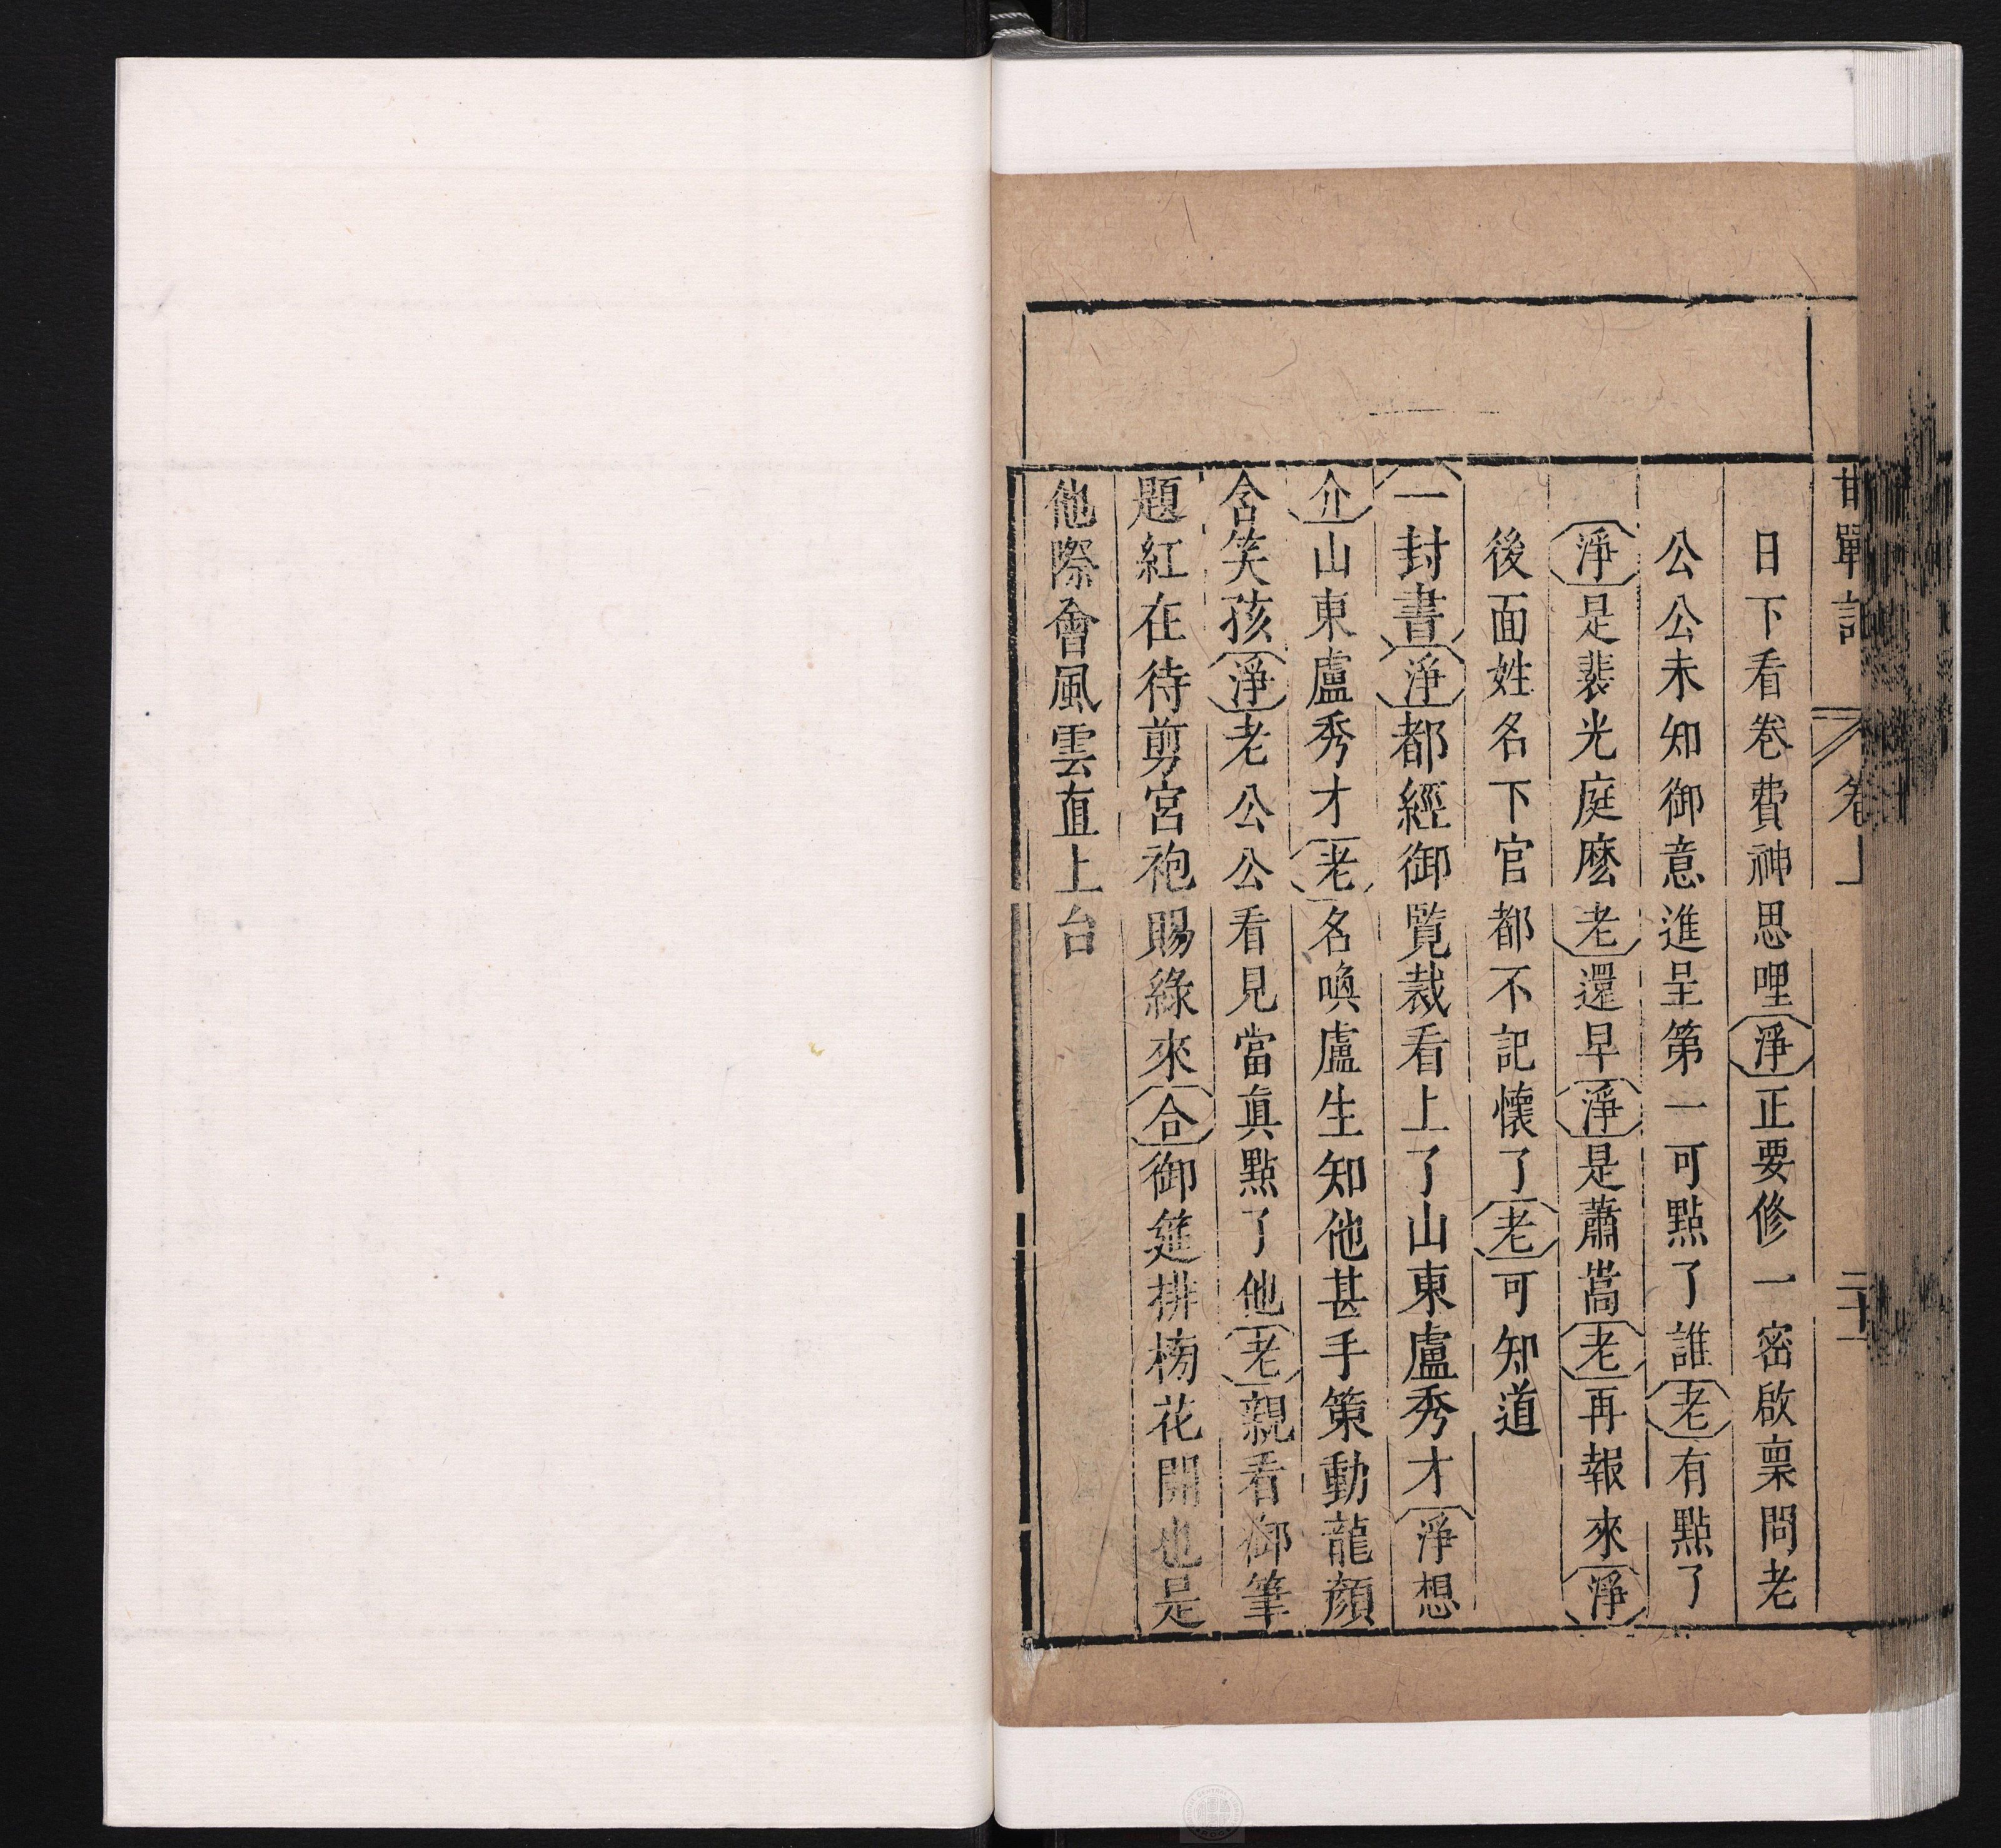 甘單記 卷上 二十一
日下看卷費神思哩淨正要修一密啟稟問老
公公未知御意進呈第一可點了誰老有點了
淨是裴光庭麽老還早淨是蕭嵩老再報來淨
後面姓名下官都不記懷了老可知道
一封書淨都經御覽裁看上了山東盧秀才淨想
介山東盧秀才老名喚盧生知他甚手策動龍顏
含笑孩淨老公公看見當眞點了他老親看御筆
題紅在待剪宮袍賜綠來合御筵排榜花開也是
他際會風雲直上台